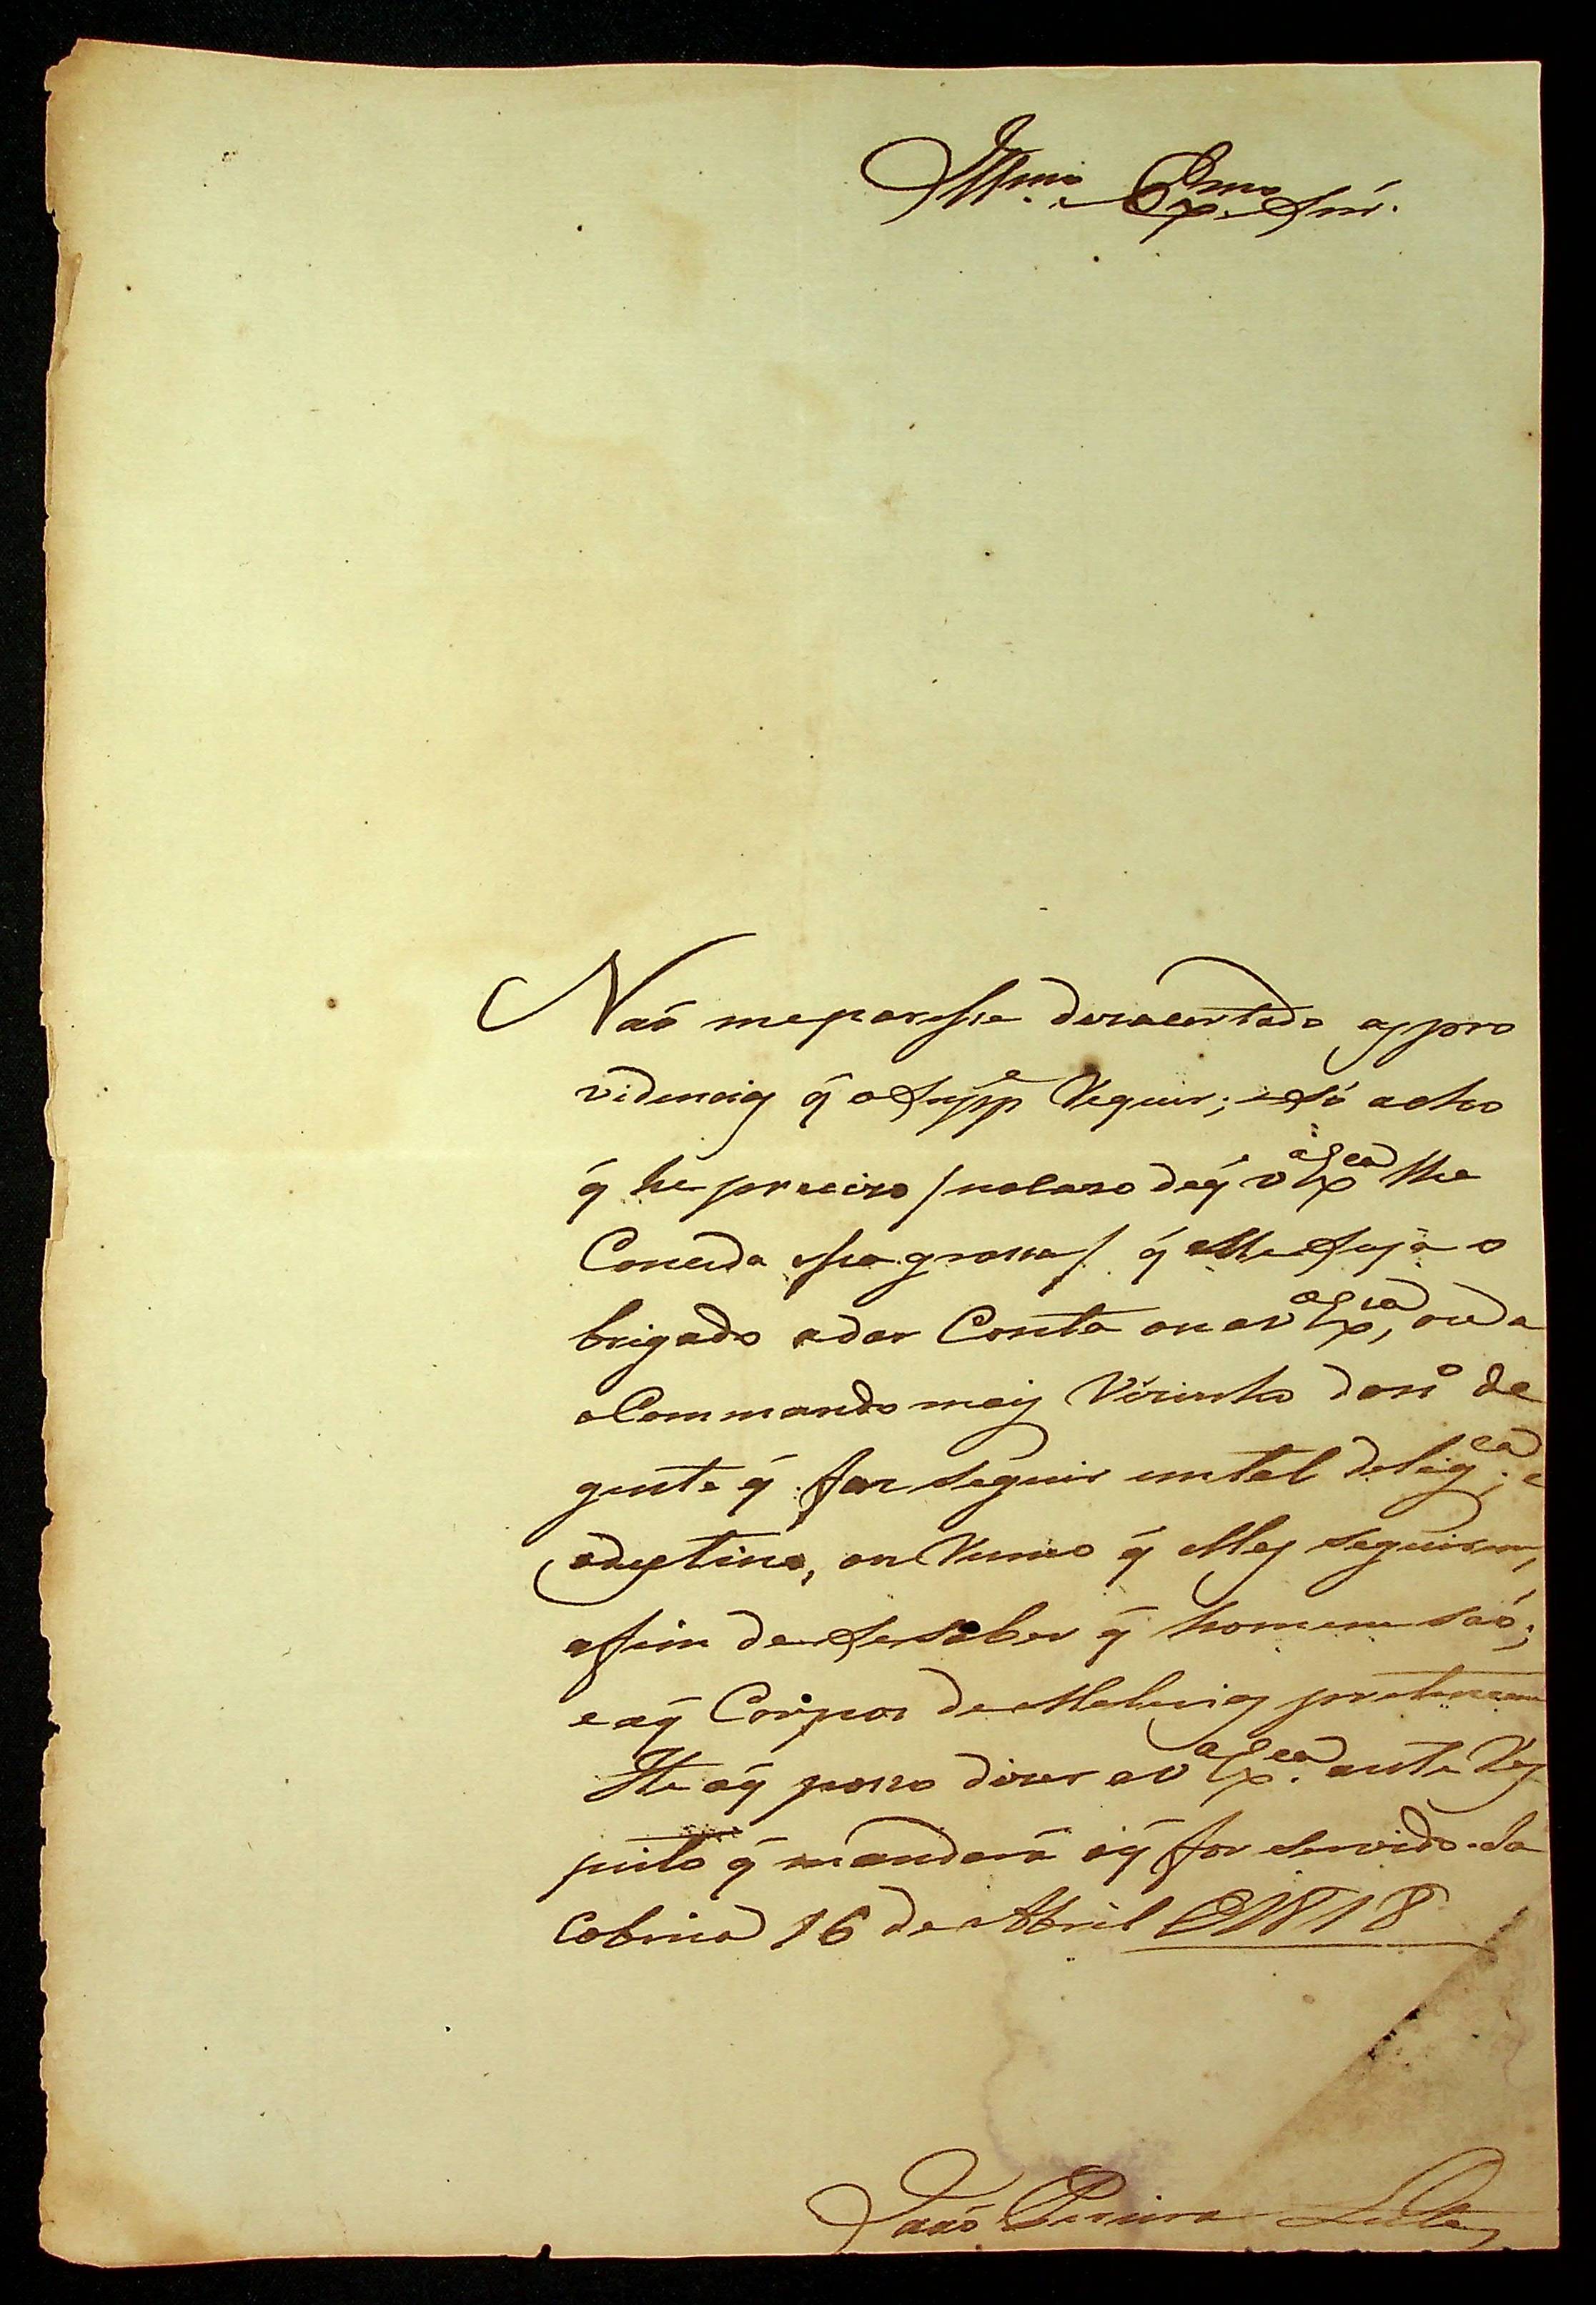 Illmo. Exmo. Snr.
Naõ meparesse dezacertado as pro
videncias q̃ o Suppe Requer; só acho
q̃ he precizo /nocazo deq̃ va Exca lhe
Conceda essa graça/ q̃ elle seja o
brigado adar Conta ou av.a Exca, ou a
o Commando mais Vizinho don.o de
gente q̃ faz seguir emtal delig.ca; e
odestino, ou Rumo q̃ elles seguirem,
afim de se saber q̃ homens saõ;
e aq̃ Corpos de Melicias pertencem
He oq̃ posso dizer av.a Exca. ante Res
peito q̃ mandará oq̃ for servido. Ja
cobina 16 de Abril 1818
Joaõ Pereira Leite